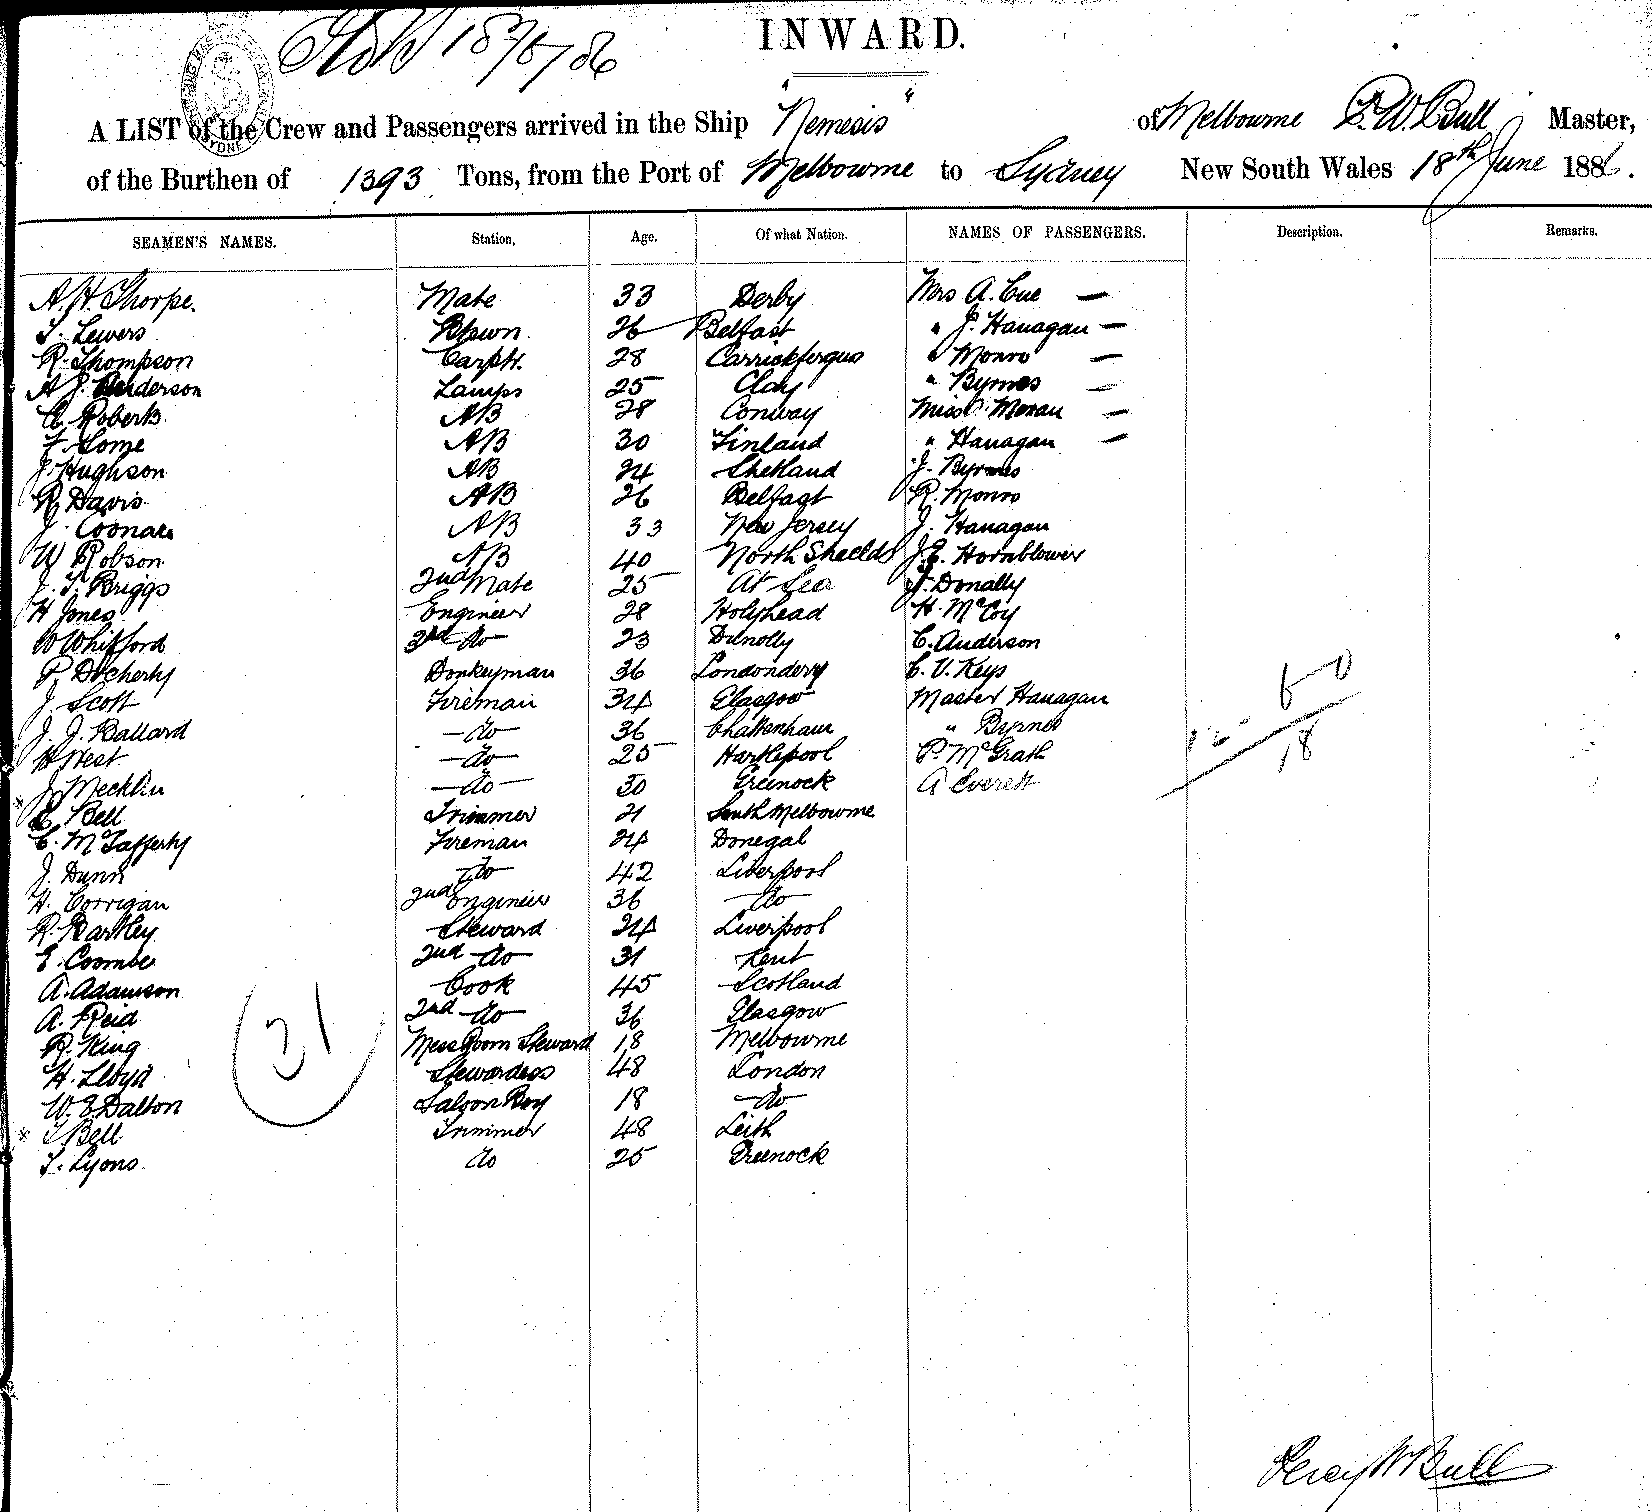 INWARD.
A LIST of the Crew and Passengers arrived in the Ship "Nemesis" of Melbourne P. W. Bull Master,
of the Burthen of 1393 Tons, from the Port of Melbourne to Sydney New South Wales 18th June 1886.
SEAMEN'S NAMES. Station, Age. Of what Nation. NAMES OF PASSENGERS. Description. Remarks.
A. H. Thorpe. Mate 33 Derby Mrs A. Cue —
T. Lewers 26 Belfast " J. Hanagan —
R. Thompson Carptr. 28 Carrickfergus " Monro —
A J. Lamps 25 Clay " Byrnes —
Roberts AB 28 Conway Miss Moran —
F. Lome AB 30 Finland " Hanagan —
J. Hughson AB 24 Shetland J. Byrnes
R. Davis AB 26 Belfast R. Monro
J. AB 33 New Jersey J. Hanagan
W Robson AB 40 North Shields J. E. Hornblower
J. T. Briggs 2nd Mate 25 At Sea J. Donally
H Jones Engineer 28 Holyhead H. McCoy
W Whifford 3rd do 23 Dunolly C. Anderson
P. Docherty Donkeyman 36 Londonderry C. V. Keys
J. Scott Fireman 34 Glasgow Master Hanagan
J. J. Ballard —do— 36 Chattenham " Byrnes
H West —do— 25 Hartlepool P. McGrath
J. Mecklin —do— 30 Greenock A Everett
Bell Trimmer 21 South Melbourne
C. McTafferty Fireman 24 Donegal
J. Dunn do 42 Liverpool
H. Corrigan 2nd Engineer 36 —do—
R. Bartley Steward 24 Liverpool
E. Coombe 2nd do 31 Kent
A. Adamson Cook 45 Scotland
A. Reid 2nd do 36 Glasgow
R. King Mess Room Steward 18 Melbourne
H. Lloyd Stewardess 48 London
W. E Dalton Saloon Boy 18 —do—
Bell Trimmer 48 Leith
T. Lyons. do 25 Greenock
31
18
Percy W Bull